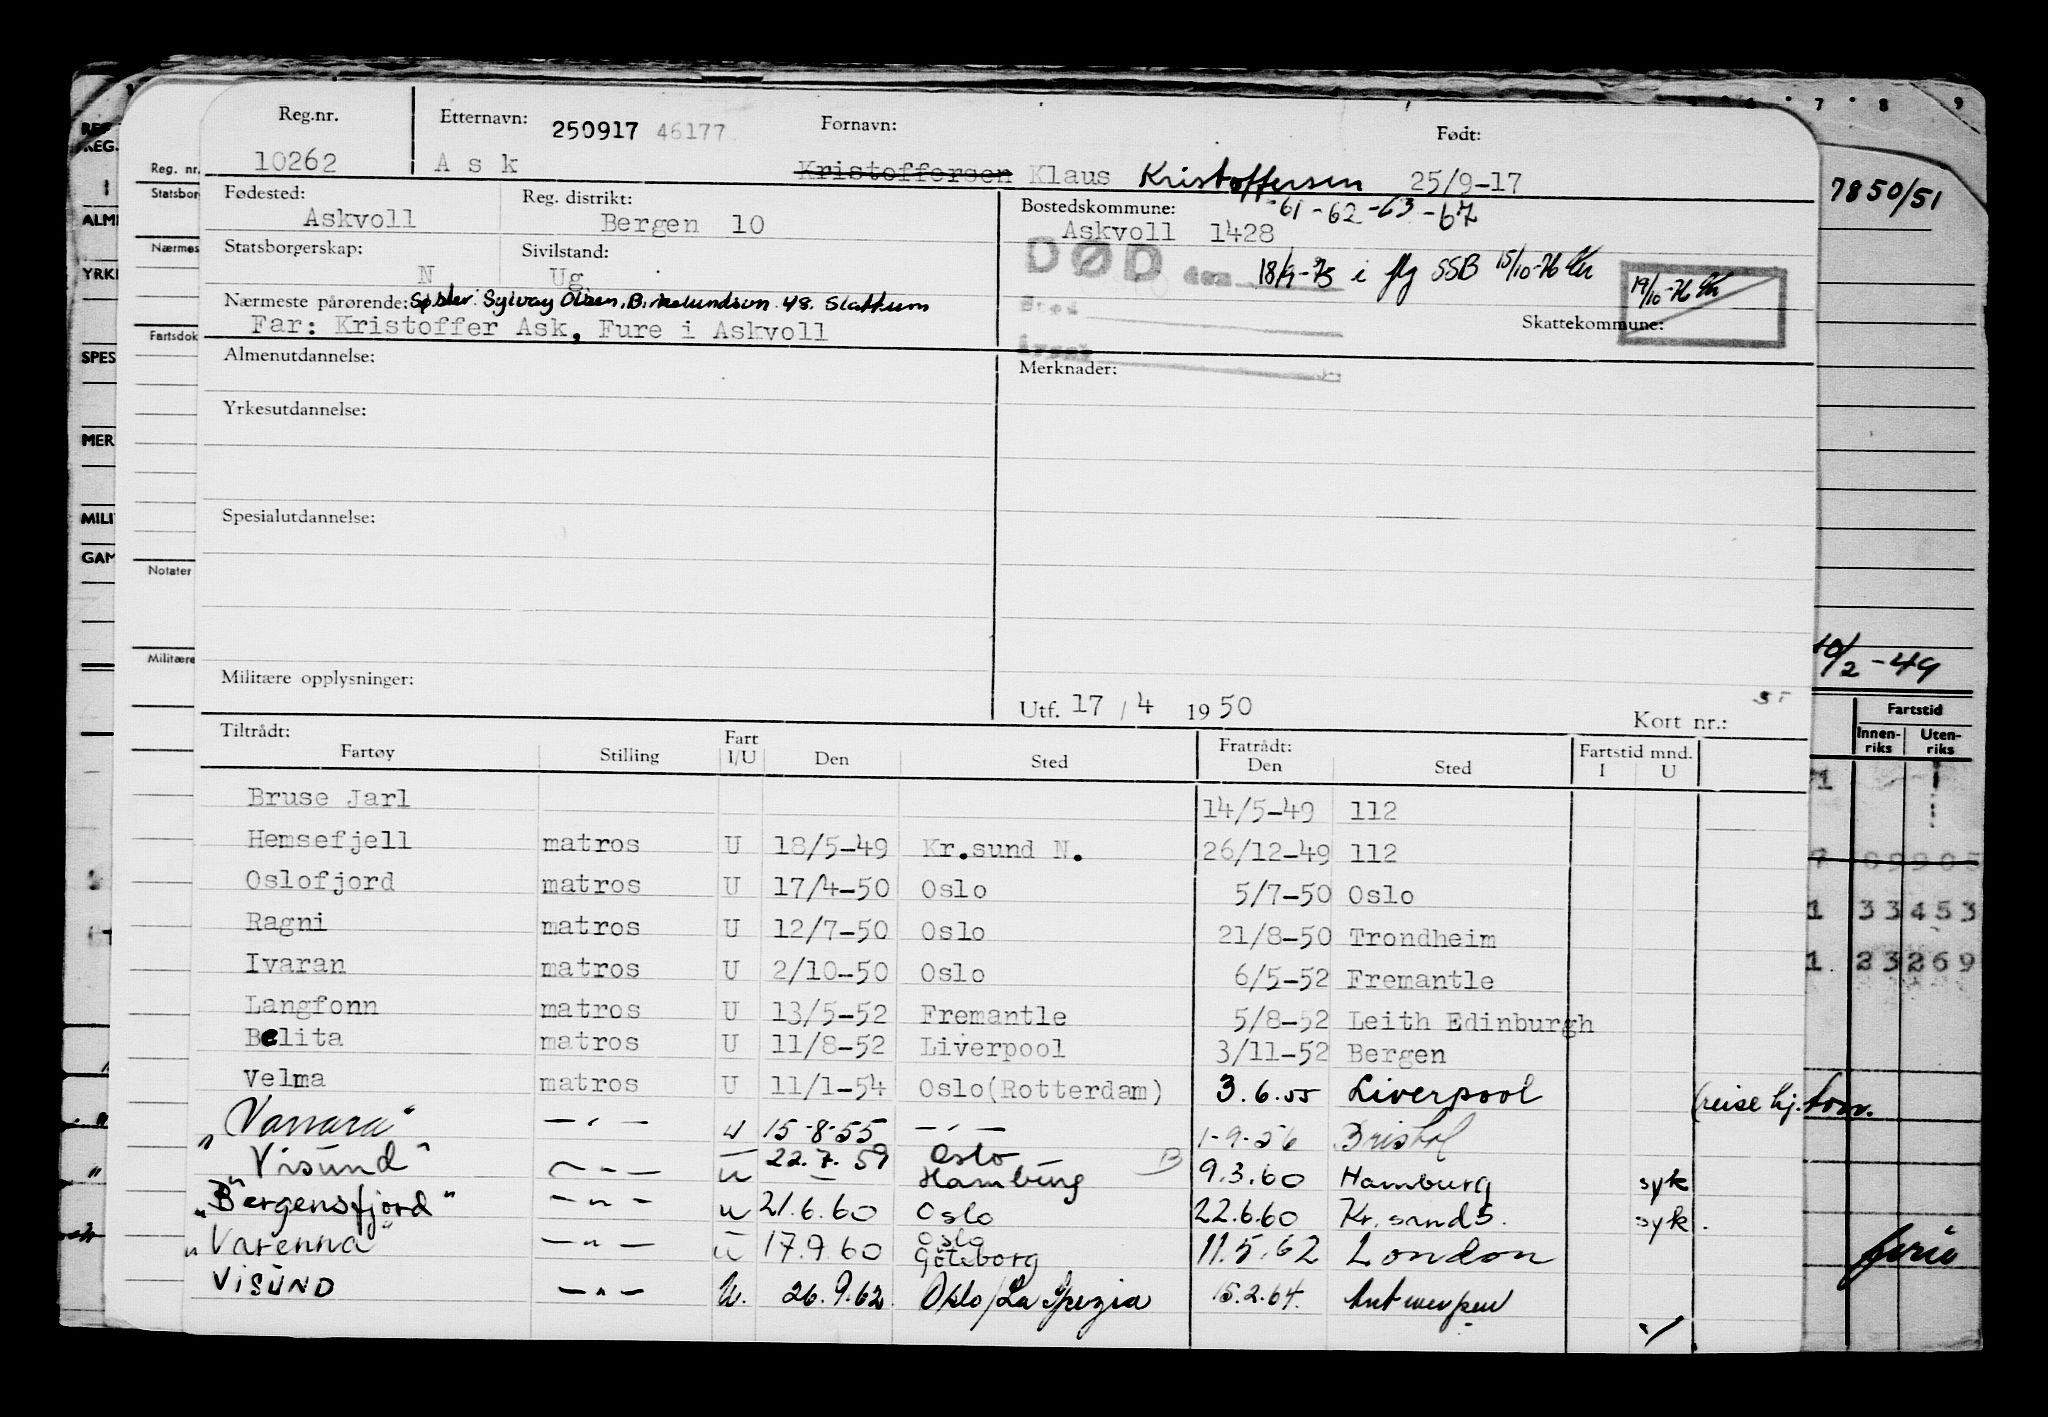 Reg.nr. Etternavn: 250917 46177 Fornavn: Født:
10262 Ask Kristoffersen Klaus Kristoffersen 25/9-17
Fødested: Reg. distrikt: Bostedskommune: -61-62-63-67
Askvoll Bergen 10 Askvoll 1428
Statsborgerskap: Sivilstand: DØD den 18/9-75 i flg SSB 15/10-76
N Ug. 19/10-76
Nærmeste pårørende: Søster: Sylvay Olsen, Birkelundsvn 48. Slattum Sted
Far: Kristoffer Ask, Fure i Askvoll Skattekommune:
Årsak
Almenutdannelse: Merknader:
Yrkesutdannelse:
Spesialutdannelse:
Militære opplysninger:
Utf. 17/4 1950 Kort nr.:
Tiltrådt: Fart Fratrådt: Fartstid mnd.
Fartøy Stilling I/U Den Sted Den Sted I U
Bruse Jarl 14/5-49 112
Hemsefjell matros U 18/5-49 Kr.sund N. 26/12-49 112
Oslofjord matros U 17/4-50 Oslo 5/7-50 Oslo
Ragni matros U 12/7-50 Oslo 21/8-50 Trondheim
Ivaran matros U 2/10-50 Oslo 6/5-52 Fremantle
Langfonn matros U 13/5-52 Fremantle 5/8-52 Leith Edinburgh
Belita matros U 11/8-52 Liverpool 3/11-52 Bergen
Velma matros U 11/1-54 Oslo(Rotterdam) 3.6.55 Liverpool (reise hj.
"Vanara" —"— U 15-8-55 —"— 1-9-56 Bristol
"Visund" —"— u 22.7.59 Oslo Hamburg B 9.3.60 Hamburg syk
"Bergensfjord" —"— u 21.6.60 Oslo 22.6.60 Kr.sand S. syk.
"Varenna" —"— u 17.9.60 Oslo Göteborg 11.5.62 London
VISUND —"— U. 26.9.62 Oslo/La Spezia 15.2.64. Antwerpen
REG.
ALM
YRK
SPES
MER
MILI
GAM
Reg. nr.
Statsbor
Nærmes
Fartsdok
Notater
Militære
7 8 9
7850/51
10/2-49
Fartstid
Innen-riks Uten-riks
1 33453
1 23269
ferie